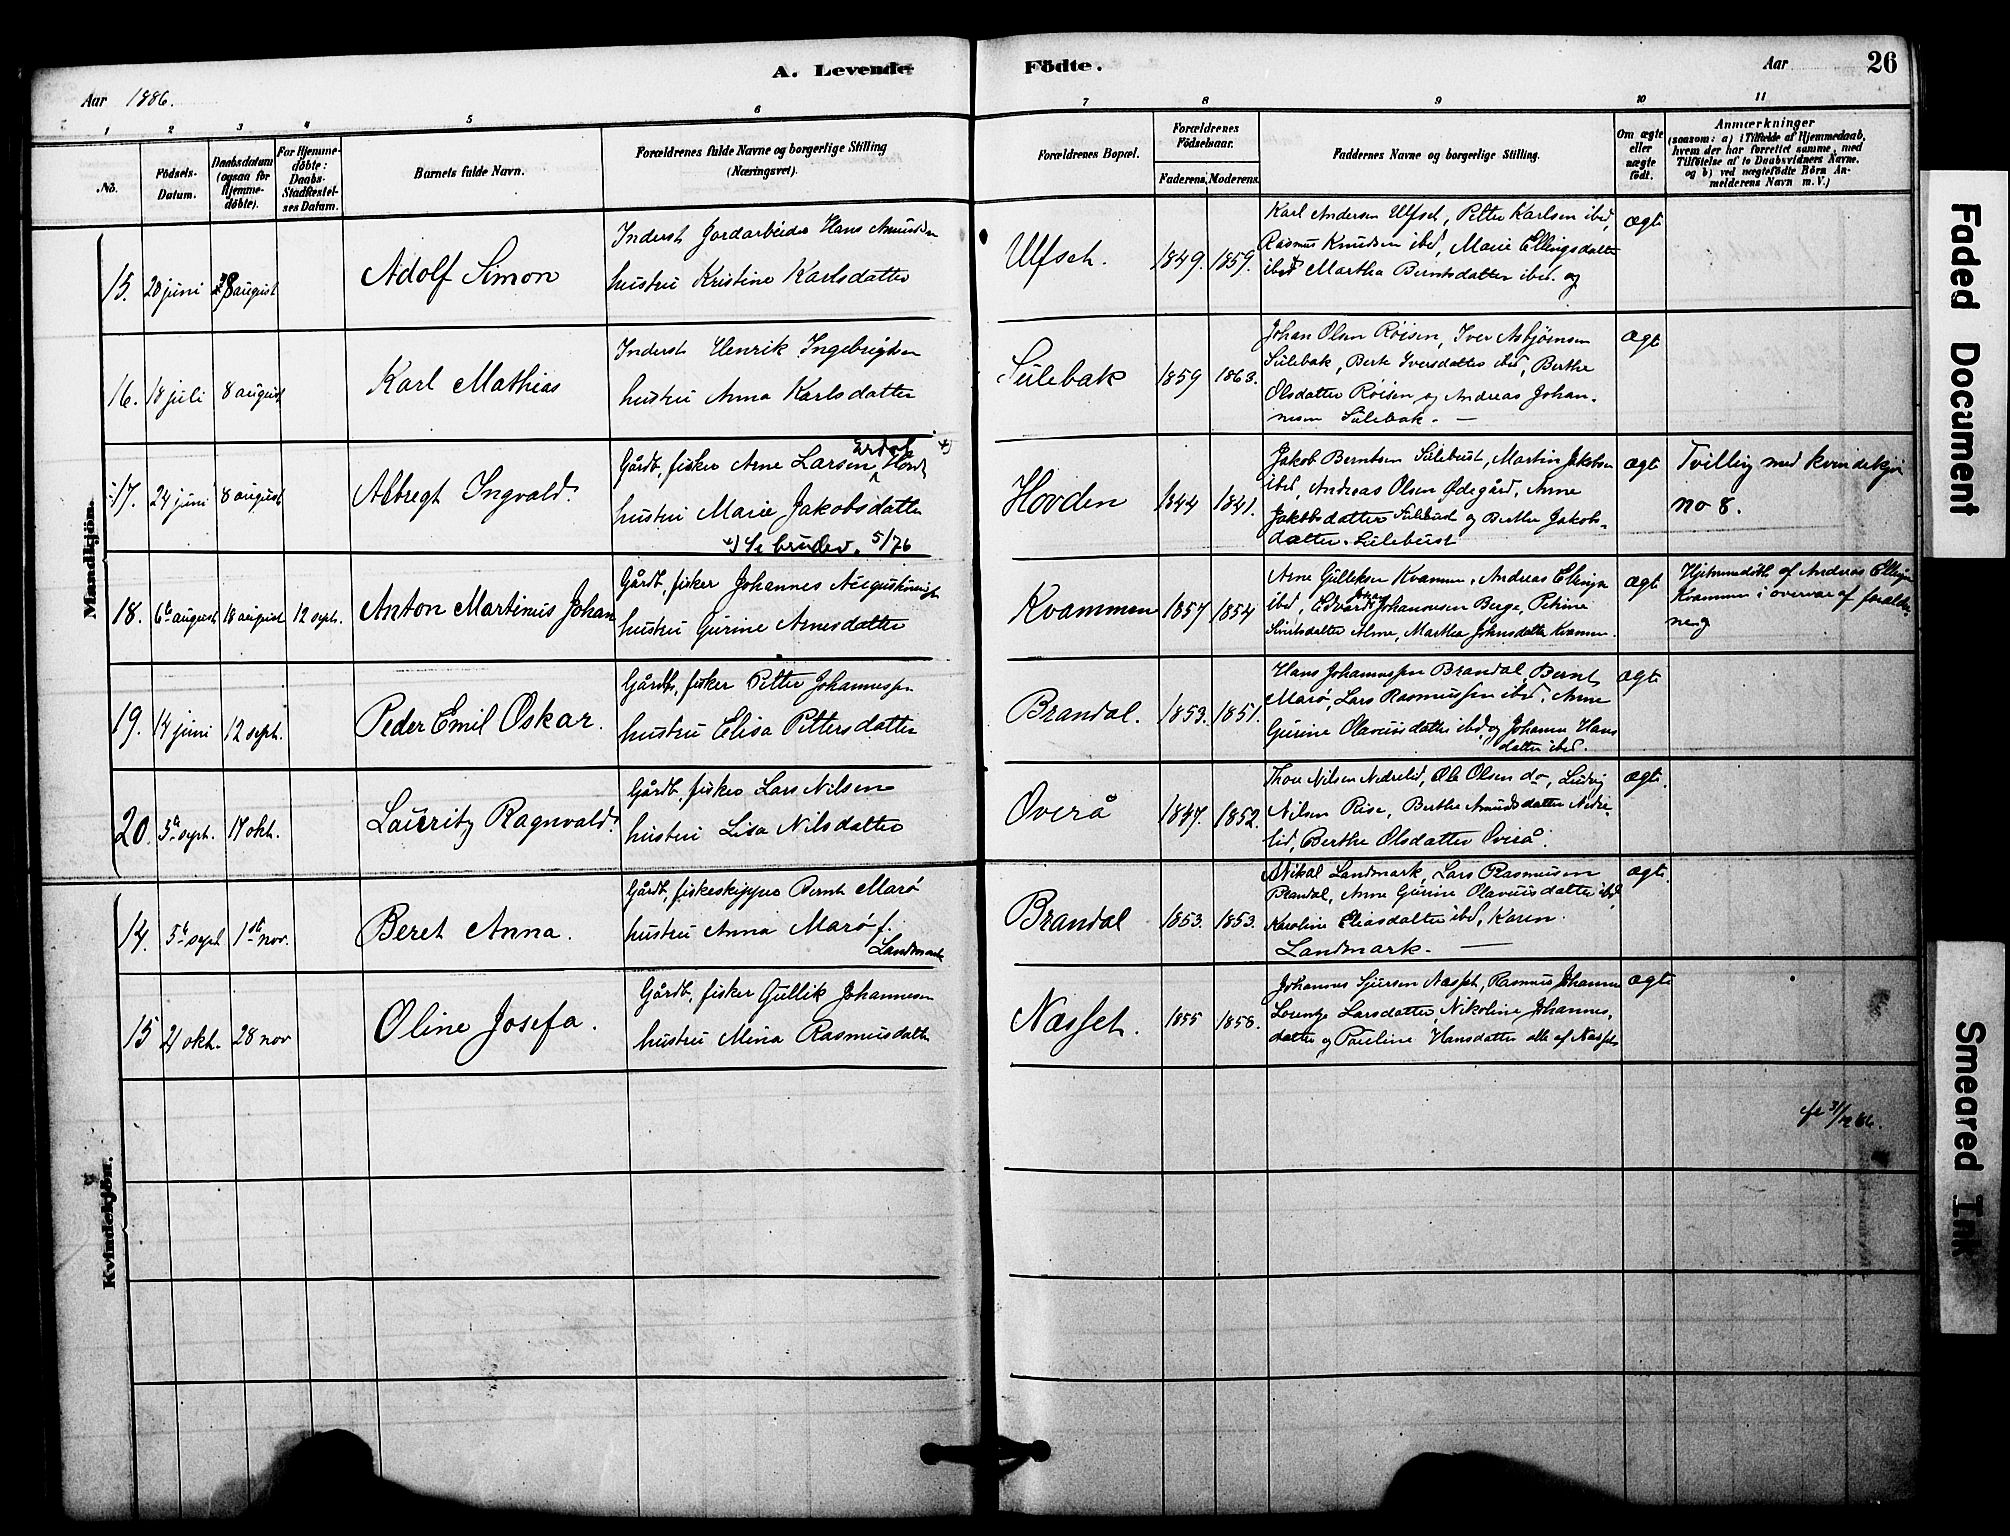 A. Levende Födte.
Aar 1886.
Aar 26
1 2 3 4 5 6 7 8 9 10 11
No.
Födsels-Datum.
Daabsdatum (ogsaa for Hjemme-döbte).
For Hjemme-döbte: Daabs-Stadfæstel-ses Datum.
Barnets fulde Navn.
Forældrenes fulde Navne og borgerlige Stilling (Næringsvei).
Forældrenes Bopæl.
Forældrenes Födselsaar.
Faderens. Moderens.
Faddernes Navne og borgerlige Stilling.
Om ægte eller uægte födt.
Anmærkninger
(saasom: a) i Tilfælde af Hjemmedaab,
hvem der har forrettet samme, med
Tilföielse af to Daabsvidners Navne,
og b) ved uægtefödte Börn An-
melderens Navn m. V.)
Mandkjön.
15. 20 juni 8 august
Adolf Simon
Inderst Jordarbeider Hans Amundsen
hustru Kristine Karlsdatter
Ulfset. 1849. 1859.
Karl Andersen Ulfset, Petter Karlsen ibid,
Rasmus Knudsen ibid, Marie Ellingsdatter
ibid Martha Berntsdatter ibid. og
ægte
16. 18 juli 8 august
Karl Mathias
Inderst Henrik Ingebrigtsen
hustru Anna Karlsdatter
Sulebak 1859 1863.
Johan Olsen Røisen, Iver Asbjørnsen
Sulebak, Berte Iversdatter ibid, Berthe
Olsdatter Røisen og Andreas Johan-
nesen Sulebak. —
ægte
17. 24 juni 8 august
Albregt Ingvald.
Gårdb. fisker Arne Larsen Erdal, Hovd +)
hustru Marie Jakobsdatter
+) Se bruder. 5/76
Hovden 1844 1841.
Jakob Berntsen Sulebust, Martin Jakobsen
ibid, Andreas Olsen Ødegård, Anne
Jakobsdatter Sulebust og Berthe Jakobs-
datter. Sulebust
ægte
Tvilling med kvindekjøn
no 8.
18. 6te august 18 august 12 sept.
Anton Martinus Johan
Gårdb. fisker Johannes
hustru Gurine Arnesdatter
Kvammen 1857 1854
Arne Gulliksen Kvammen, Andreas Ellingsen
ibid, Edvard Johannesen Berge, Petrine
Knutsdatter Alme, Martha Johnsdatter Kvammen.
ægte
Hjemmedøbt af Andreas Ellingsen
Kvammen i overvær af foræld-
rene
19. 14 juni 12 sept.
Peder Emil Oskar.
Gårdb. fisker Petter Johannessen
hustru Elisa Pettersdatter
Brandal. 1853. 1851.
Hans Johannessen Brandal, Bernt
Marø, Lars Rasmussen ibid, Anne
Gurine Olavusdatter ibid, og Johanne Hans
datter ibid.
ægte
20. 5te sept. 17 okt.
Lauritz Ragnvald.
Gårdb. fisker Lars Nilsen
hustru Lisa Nilsdatter
Overå 1847. 1852.
Thore Nilsen Nedrelid, Ole Olsen do, Ludvig
Nilsen Rise, Berthe Amundsdatter Nedre-
lid, Berthe Olsdatter Overå.
ægte
Kvindekjön.
14. 5te sept 1ste nov.
Beret Anna.
Gårdb. fiskeskipper Bernt Marø
hustru Anna Marø f.
Landmark
Brandal 1853. 1853.
Nikal Landmark, Lars Rasmusen
Brandal, Anne Gurine Olavusdatter ibid
Karoline Eliasdatter ibid, Karen
Landmark. —
ægte.
15 21 okt. 28 nov
Oline Josefa.
Gårdb. fisker Gullik Johannesen
hustru Mina Rasmusdatter
Næsset. 1855 1858.
Johannes Sjursen Næsset, Rasmus Johannesen
Lorentze Larsdatter, Nikoline Johannes-
datter og Pauline Hansdatter alle af Næsset
ægte
31/12 86.
Faded Document
Smeared Ink